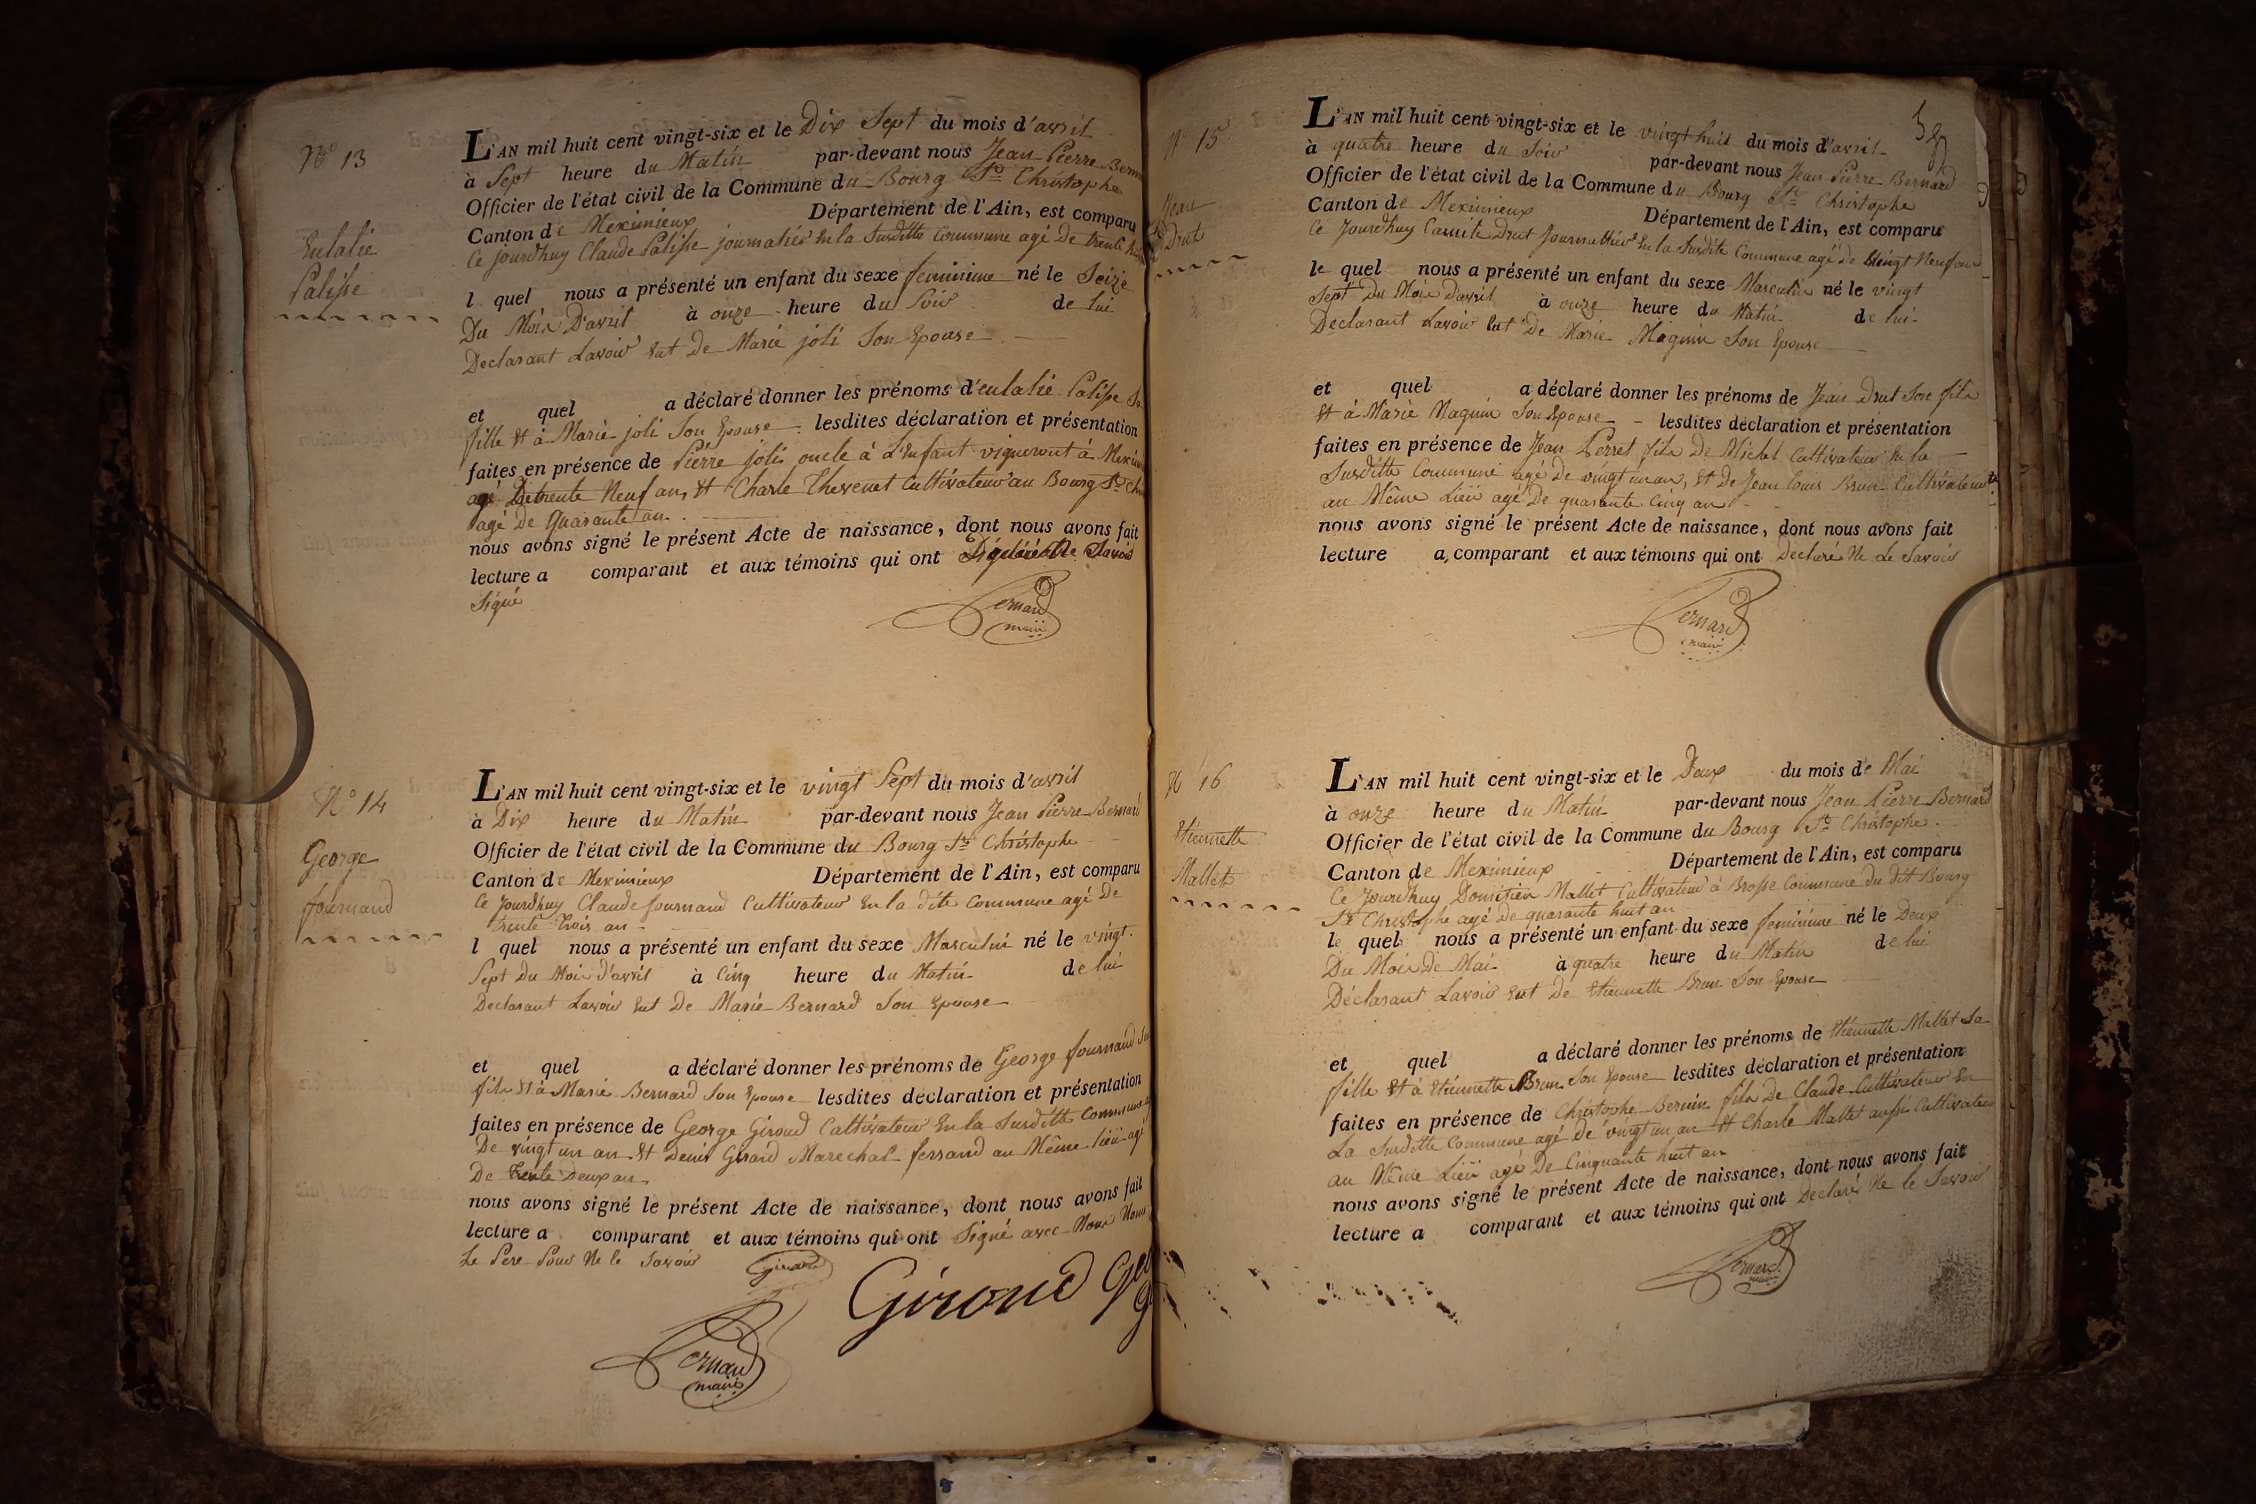 N° 13
Eulalie
Palisse
L'AN mil huit cent vingt-six et le Dix Sept du mois d'avril
à Sept heure du Matin par-devant nous Jean Pierre Bern
Officier de l'état civil de la Commune du Bourg St Christophe
Canton de Meximieux Département de l'Ain, est comparu
Ce jourdhuy Claude Palisse journalier En la Susditte Commune agé De trente
l quel nous a présenté un enfant du sexe feminine né le Seize
Du Mois D'avril à onze heure du Soir de lui
Declarant Lavoir Eut De Marie joli Son Epouse
et quel a déclaré donner les prénoms d'eulalie Palisse Sa
fille Et à Marie joli Son Epouse lesdites déclaration et présentation
faites en présence de Pierre joli oncle à L'Enfant vigneront à Mexim
agé De trente Neuf an, Et Charle Thevenet Cultivateur au Bourg St Chr
agé De Quarante an
nous avons signé le présent Acte de naissance, dont nous avons fait
lecture a comparant et aux témoins qui ont Déclaré Ne Savoir
Signé
Bernard
maire
N° 14
George
fournand
L'AN mil huit cent vingt-six et le vingt Sept du mois d'avril
à Dix heure du Matin par-devant nous Jean Pierre Bernard
Officier de l'état civil de la Commune du Bourg St Christophe
Canton de Meximieux Département de l'Ain, est comparu
Ce jourdhuy Claude fournand Cultivateur En la dite Commune agé De
trente trois an
l quel nous a présenté un enfant du sexe Masculin né le vingt
Sept Du Mois d'avril à Cinq heure du Matin de lui
Declarant Lavoir Eut De Marie Bernard Son Epouse
et quel a déclaré donner les prénoms de George fournand Son
fils Et à Marie Bernard Son Epouse lesdites déclaration et présentation
faites en présence de George Giroud Cultivateur En la Susditte Commune
De vingt un an Et Denis Girard Marechal ferrand au Même Lieu agé
De trente Deux an
nous avons signé le présent Acte de naissance, dont nous avons fait
lecture a comparant et aux témoins qui ont Signé avec Nous Non
Le Pere Pour Ne le Savoir
Girard
Giroud
Bernard
maire
N° 15
Jean
Drut
L'AN mil huit cent vingt-six et le vingt huit du mois d'avril
à quatre heure du Soir par-devant nous Jean Pierre Bernard
Officier de l'état civil de la Commune du Bourg St Christophe
Canton de Meximieux Département de l'Ain, est comparu
Ce Jourdhuy Drut Journallier En la Susdite Commune agé de Vingt Neuf an
le quel nous a présenté un enfant du sexe Masculin né le vingt
Sept Du Mois D'avril à onze heure du Matin de lui
Declarant Lavoir Eut De Marie Maquin Son Epouse
et quel a déclaré donner les prénoms de Jean Drut Son fils
Et à Marie Maquin Son Epouse lesdites déclaration et présentation
faites en présence de Jean Perret fils De Michel Cultivateur En la
Susditte Commune agé De vingt un an, Et De Jean Louis Brun Cultivateur
au Même Lieu agé De quarante Cinq an
nous avons signé le présent Acte de naissance, dont nous avons fait
lecture a, comparant et aux témoins qui ont Declaré Ne Le Savoir
Bernard
maire
N 16
Etiennette
Mallet
L'AN mil huit cent vingt-six et le Deux du mois de Mai
à onze heure du Matin par-devant nous Jean Pierre Bernard
Officier de l'état civil de la Commune du Bourg St Christophe
Canton de Meximieux Département de l'Ain, est comparu
Ce Jourdhuy Domitien Mallet Cultivateur à Brosse Commune du dit Bourg
St Christophe agé De quarante huit an
le quel nous a présenté un enfant du sexe feminine né le Deux
Du Mois De Mai à quatre heure du Matin de lui
Déclarant Lavoir Eut de Etiennette Brun Son Epouse
et quel a déclaré donner les prénoms de Etiennette Mallet Sa
fille Et à Etiennette Brun Son Epouse lesdites déclaration et présentation
faites en présence de Christophe Bernin fils De Claude Cultivateur En
La Susditte Commune agé de vingt un an Et Charle Mallet aussi Cultivateur
au Même Lieu agé De Cinquante huit an
nous avons signé le présent Acte de naissance, dont nous avons fait
lecture a comparant et aux témoins qui ont Declaré Ne le Savoir
Bernard
maire